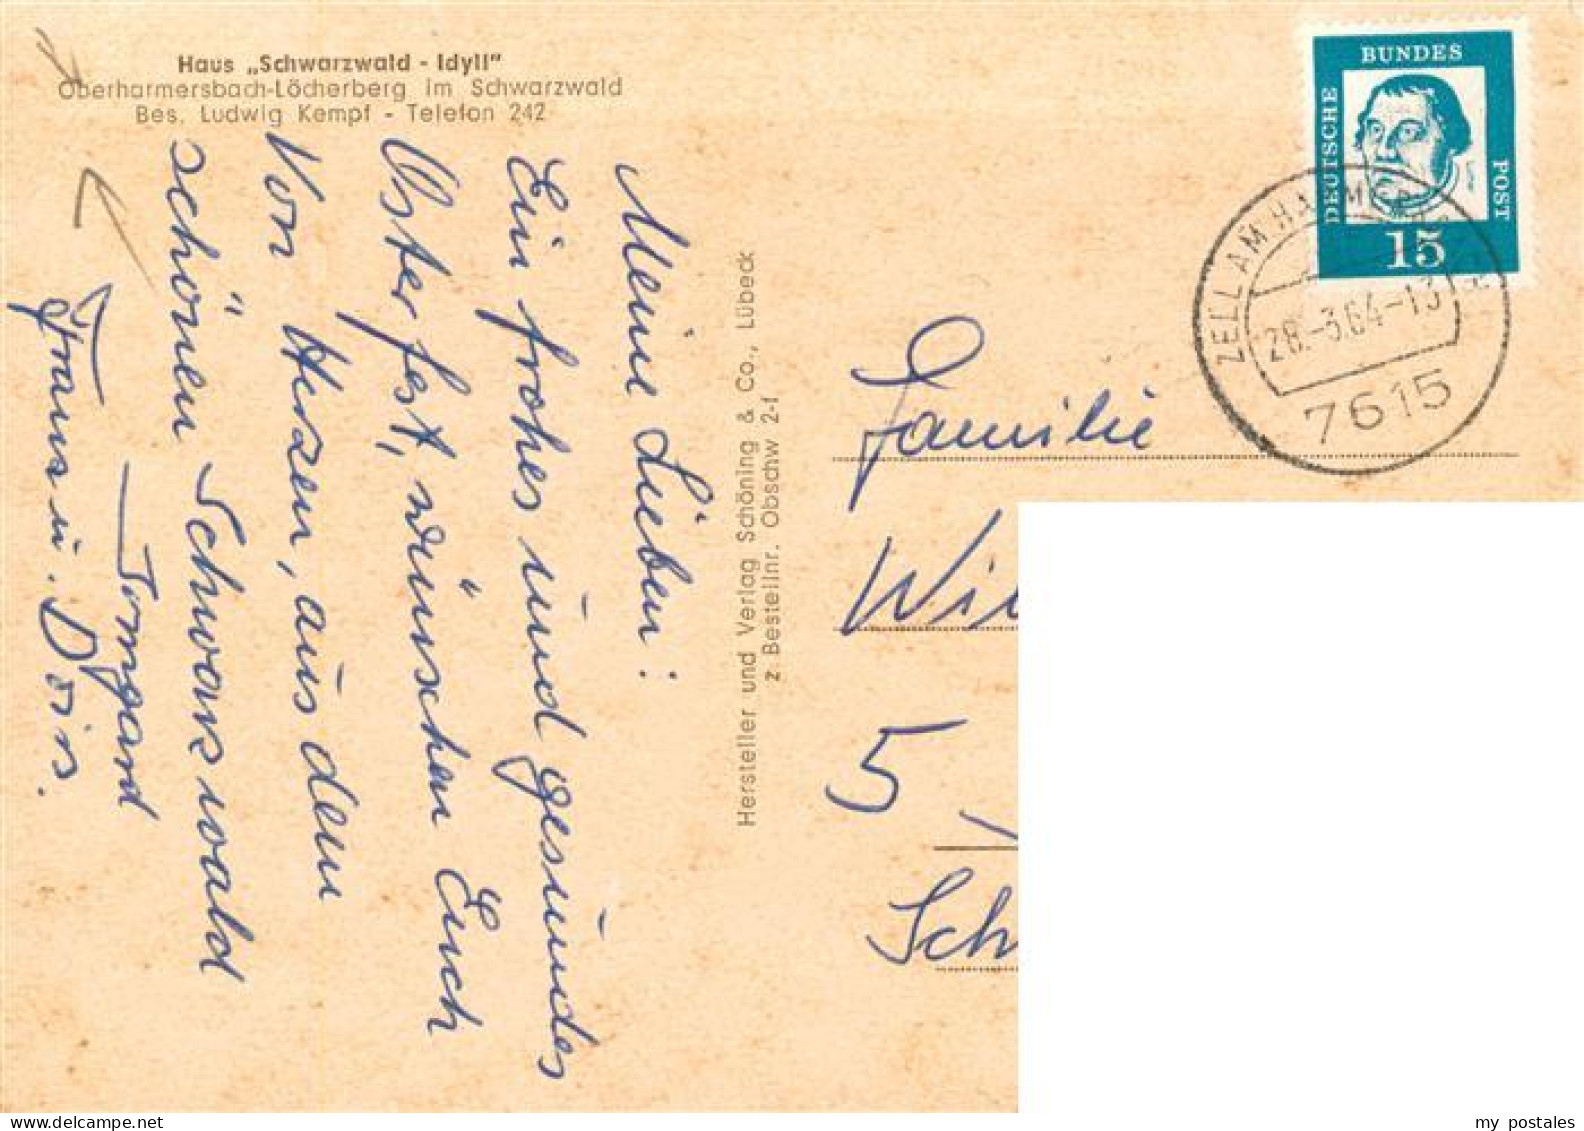 Haus „Schwarzwald - Idyll"
Oberharmersbach-Löcherberg im Schwarzwald
Bes. Ludwig Kempf - Telefon 242
Meine Lieben!
Ein frohes und gesundes
Osterfest, wünschen Euch
Von Herzen, aus dem
schönen Schwarzwald
Irmgard
Franz u. Doris.
Hersteller und Verlag Schöning & Co., Lübeck
z. Bestellnr. Obschw 2-f
DEUTSCHE
BUNDES
POST
15
ZELL AM HARMERSBACH
28.-3.64-13
7615
Familie
Wil
5
Sch
my postales